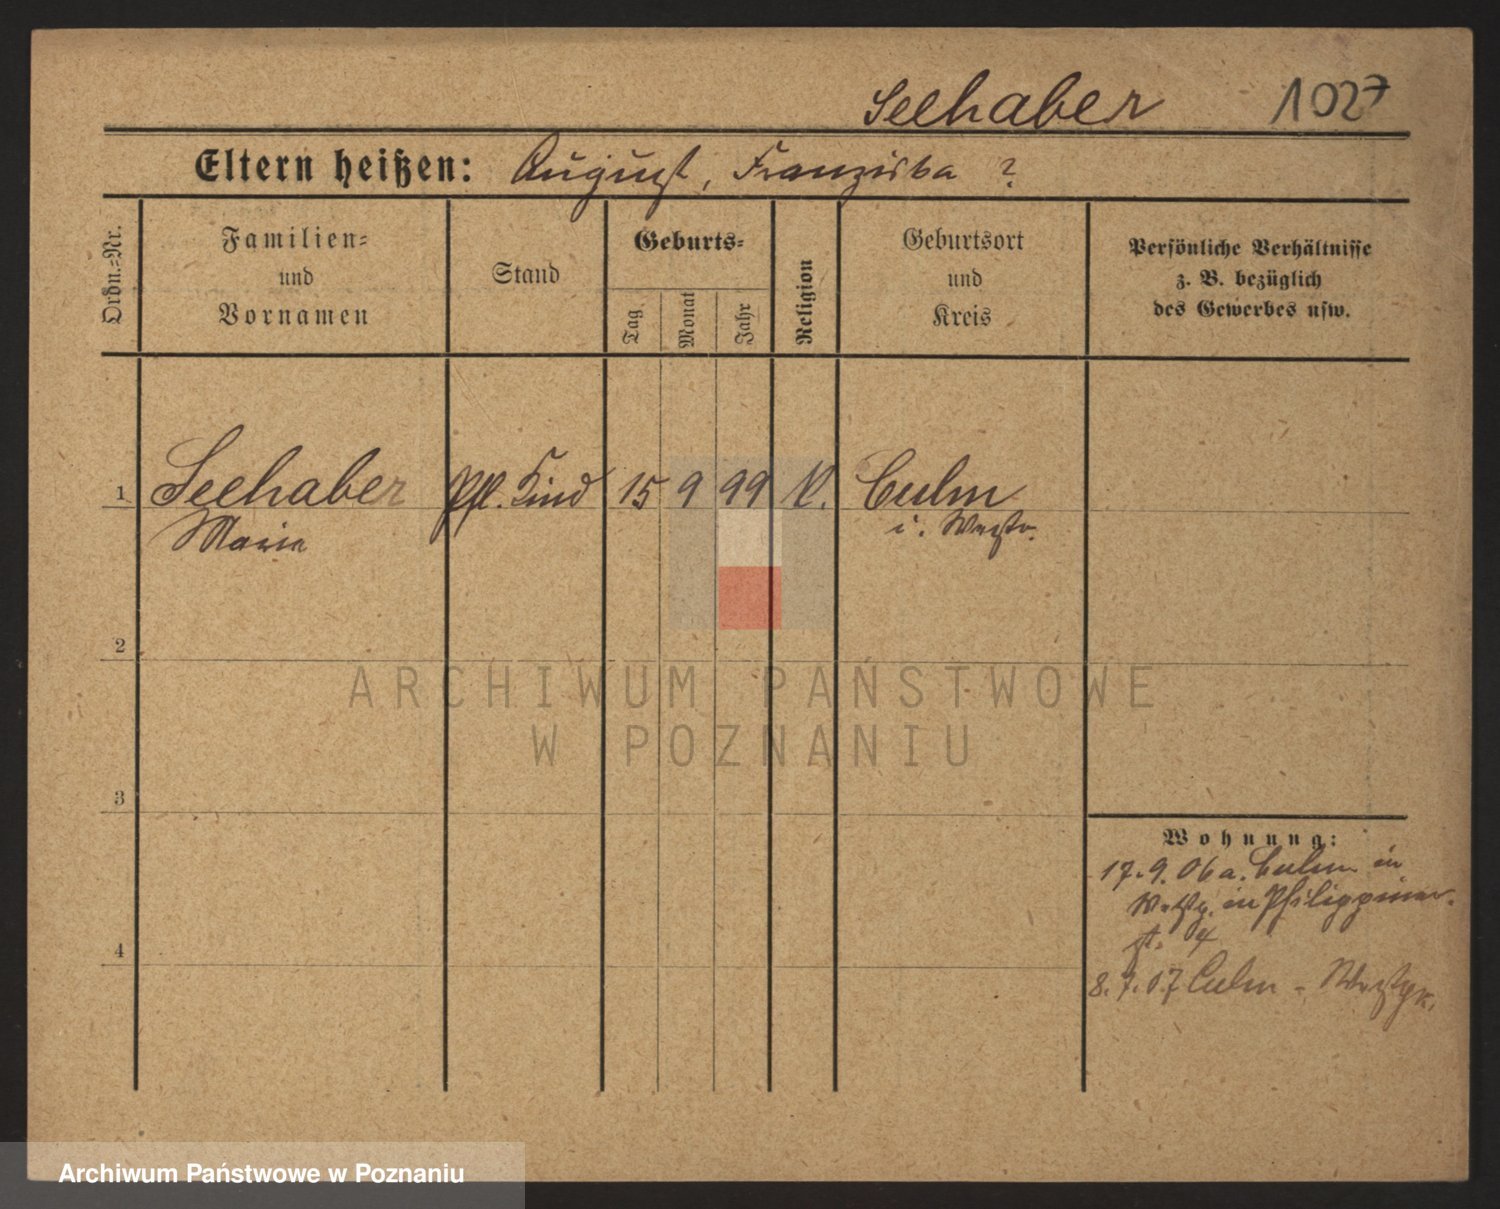 Seehaber 1027
Eltern heißen: August, Franziska ?
Ordn.-Nr.
Familien-
und
Vornamen
Stand
Geburts-
Tag
Monat
Jahr
Religion
Geburtsort
und
Kreis
Persönliche Verhältnisse
z. B. bezüglich
des Gewerbes usw.
1 Seehaber Pfl. Kind 15 9 99 K. Culm
Marie i. Westpr.
2
3
4
Wohnung:
17.9.06 a. Culm in
in Philippinen-
st. 4
8.7.07 Culm - Westpr.
ARCHIWUM PAŃSTWOWE
W POZNANIU
Archiwum Państwowe w Poznaniu